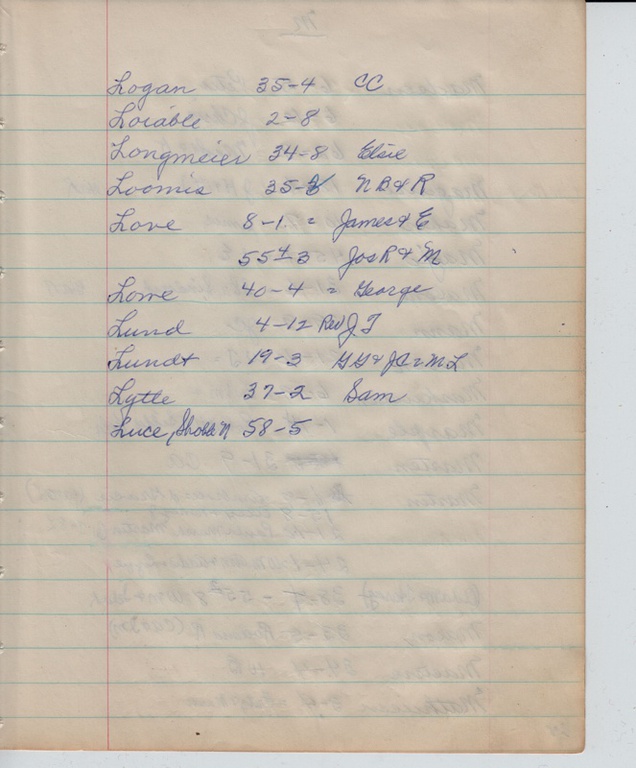 Logan 35-4 CC
Loiable 2-8
Longmeier 34-8 Elsie
Loomis 35-8 NB & R
Love 8-1. = James & E
55 4-3 Jos R & M
Lowe 40-4 = George
Lund 4-12 Rev J T
Lundt 19-3 GG & JC & ML
Lytle 37-2 Sam
Luce, 58-5